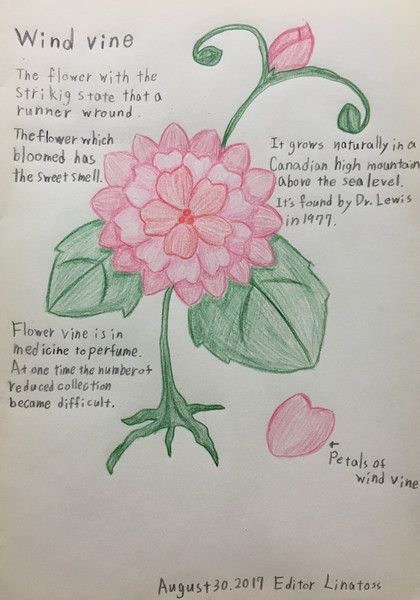 Wind vine
The flower with the
strikig state that a
runner wround.
The flower which
bloomed has
the sweet smell.
It grows naturally in a
Canadian high mountain
above the sea level.
It's found by Dr. Lewis
in 1977.
Flower vine is in
medicine to perfume.
At one time the number of
reduced collection
became difficult.
← Petals of
wind vine
August 30. 2017 Editor Linatoss